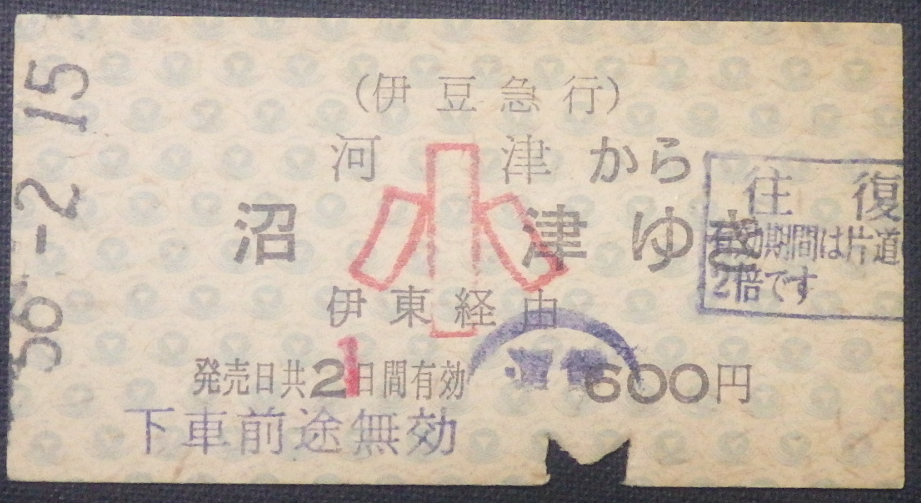 56.-2.15
(伊豆急行)
河津から
沼津ゆき
小
往復
有効期間は片道
2倍です
伊東経由
発売日共2日間有効
1
600円
下車前途無効